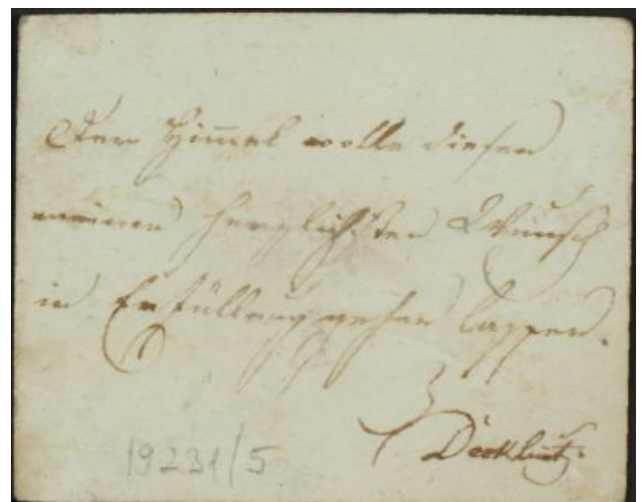 Der Himmel wolle diesen
meinen herzlichsten Wunsch
in Erfüllung gehen lassen.
19231/5